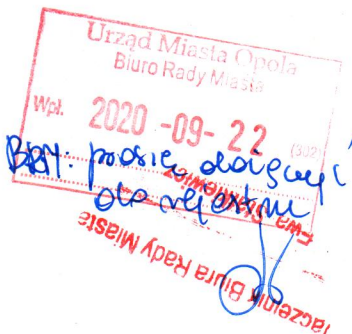 Urząd Miasta Opola
Biuro Rady Miasta
Wpł. 2020 -09- 22 (302)
BRM. proszę dołączyć
do rejestru
Ewa
Naczelnik Biura Rady Miasta